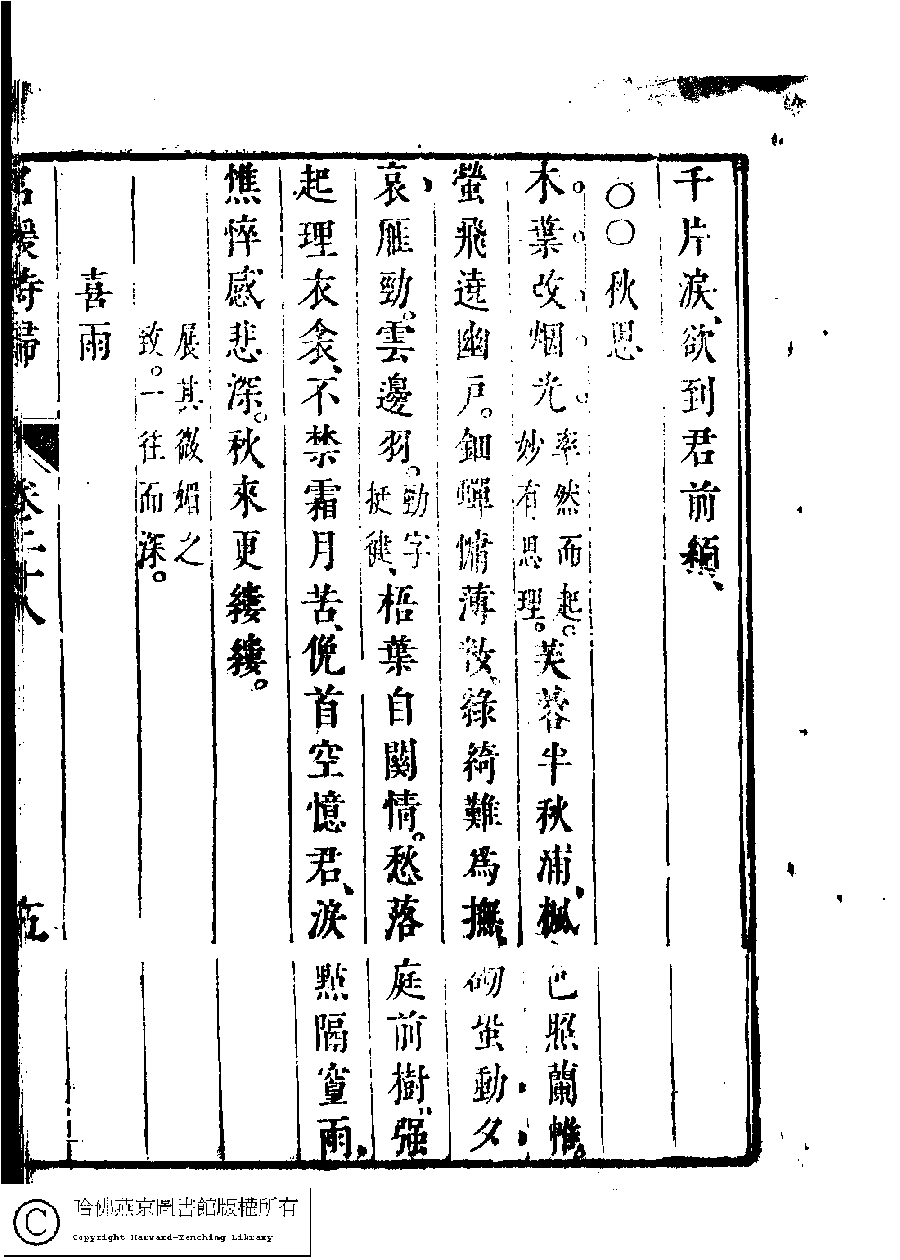 千片淚、欲到君前頳、
〇〇秋思
木葉改烟光率然而起。妙有思理。芙蓉半秋浦、楓色照蘭帷。
螢飛遶幽戶。鈿蟬慵薄妝、綠綺難爲撫、砌蛩動夕
哀、雁勁。雲邊羽。勁字挺健、梧葉自關情。愁落庭前樹、强
起理衣衾、不禁霜月苦、俛首空憶君、淚點隔窗雨、
憔悴感悲深。秋來更縷縷。
展其微媚之
致。一往而深。
喜雨
名媛詩歸 卷二十八
哈佛燕京圖書館版權所有
Copyright Harvard-Yenching Library